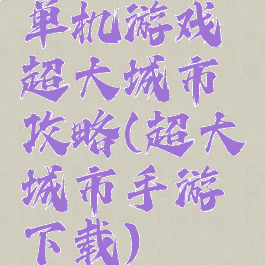 单机游戏
超大城市
攻略(超大
城市手游
下载)